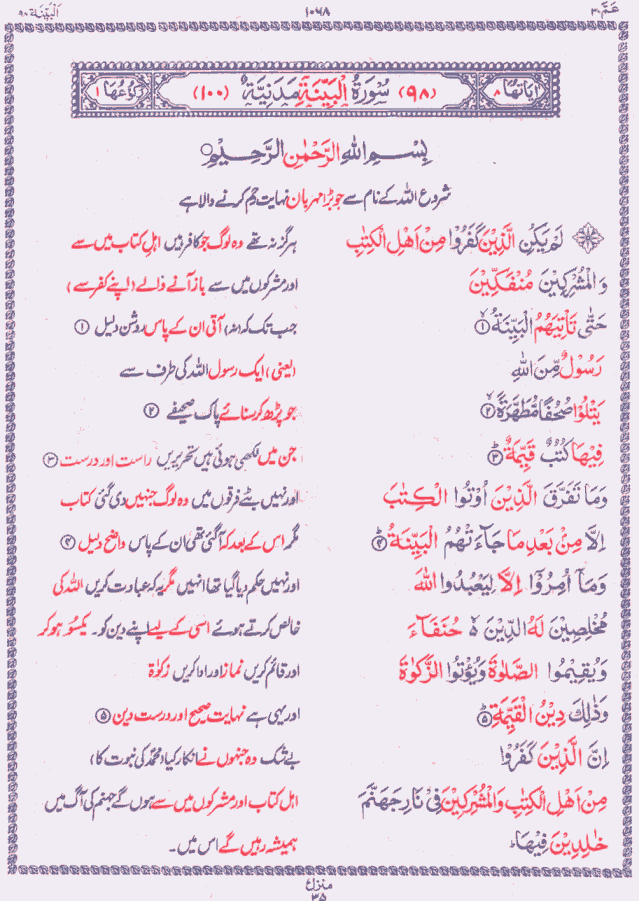 عَمَّ ٣٠ ١٠٦٨ اَلْبَيِّنَة ٩٨
اٰيَاتُهَا ٨ (٩٨) سُوْرَةُ الْبَيِّنَةِ مَدَنِيَّةٌ (١٠٠) رُكُوْعُهَا ١
بِسْمِ اللهِ الرَّحْمٰنِ الرَّحِيْمِ
شروع اللہ کے نام سے جو بڑا مہربان نہایت رحم کرنے والا ہے
لَمْ يَكُنِ الَّذِيْنَ كَفَرُوْا مِنْ اَهْلِ الْكِتٰبِ ہرگز نہ تھے وہ لوگ جو کافر ہیں اہلِ کتاب میں سے
وَالْمُشْرِكِيْنَ مُنْفَكِّيْنَ اور مشرکوں میں سے باز آنے والے (اپنے کفر سے)
حَتّٰى تَاْتِيَهُمُ الْبَيِّنَةُ ۙ‏﴿١﴾ جب تک کہ (نہ) آتی ان کے پاس روشن دلیل ﴿١﴾
رَسُوْلٌ مِّنَ اللهِ (یعنی) ایک رسول اللہ کی طرف سے
يَتْلُوْا صُحُفًا مُّطَهَّرَةً ۙ‏﴿٢﴾ جو پڑھ کر سنائے پاک صحیفے ﴿٢﴾
فِيْهَا كُتُبٌ قَيِّمَةٌ ؕ‏﴿٣﴾ جن میں لکھی ہوئی ہیں تحریریں راست اور درست ﴿٣﴾
وَمَا تَفَرَّقَ الَّذِيْنَ اُوْتُوا الْكِتٰبَ اور نہیں بٹے فرقوں میں وہ لوگ جنہیں دی گئی کتاب
اِلَّا مِنْۢ بَعْدِ مَا جَآءَتْهُمُ الْبَيِّنَةُ ؕ‏﴿٤﴾ مگر اس کے بعد کہ آ گئی تھی ان کے پاس واضح دلیل ﴿٤﴾
وَمَاۤ اُمِرُوْۤا اِلَّا لِيَعْبُدُوا اللهَ اور نہیں حکم دیا گیا تھا انہیں مگر یہ کہ عبادت کریں اللہ کی
مُخْلِصِيْنَ لَهُ الدِّيْنَ ۙ۬ حُنَفَآءَ خالص کرتے ہوئے اسی کے لیے اپنے دین کو۔ یکسو ہو کر
وَيُقِيْمُوا الصَّلٰوةَ وَيُؤْتُوا الزَّكٰوةَ اور قائم کریں نماز اور ادا کریں زکوٰۃ
وَذٰلِكَ دِيْنُ الْقَيِّمَةِ ؕ‏﴿٥﴾ اور یہی ہے نہایت صحیح اور درست دین ﴿٥﴾
اِنَّ الَّذِيْنَ كَفَرُوْا بے شک وہ جنہوں نے انکار کیا (محمدؐ کی نبوت کا)
مِنْ اَهْلِ الْكِتٰبِ وَالْمُشْرِكِيْنَ فِيْ نَارِ جَهَنَّمَ اہلِ کتاب اور مشرکوں میں سے ہوں گے جہنم کی آگ میں
خٰلِدِيْنَ فِيْهَا ؕ ہمیشہ رہیں گے اس میں۔
منزل ٧
٣٥